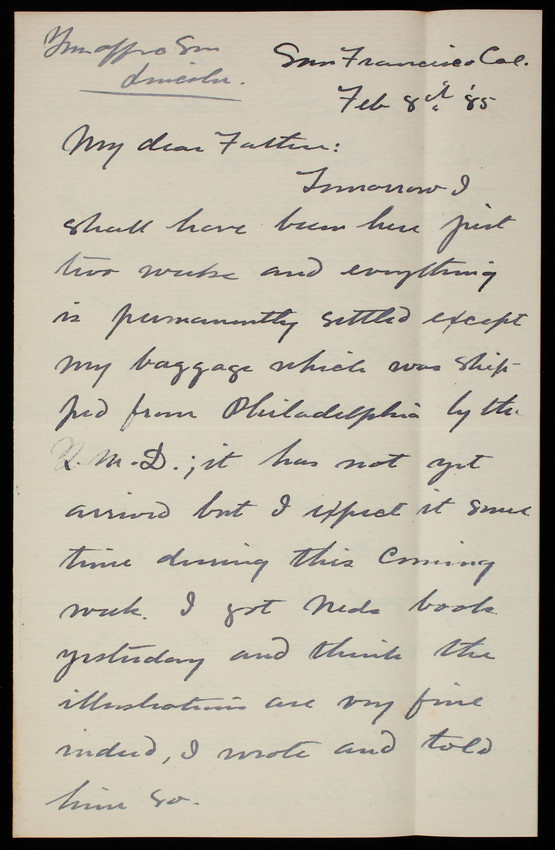 Your affec Son
Lincoln.
San Francisco Cal.
Feb 8th '85
My dear Father:
Tomorrow I
shall have been here just
two weeks and everything
is permanently settled except
my baggage which was ship-
ped from Philadelphia by the
Q.M.D.; it has not yet
arrived but I expect it some
time during this coming
week. I got Neds book
yesterday and think the
illustrations are very fine
indeed, I wrote and told
him so.